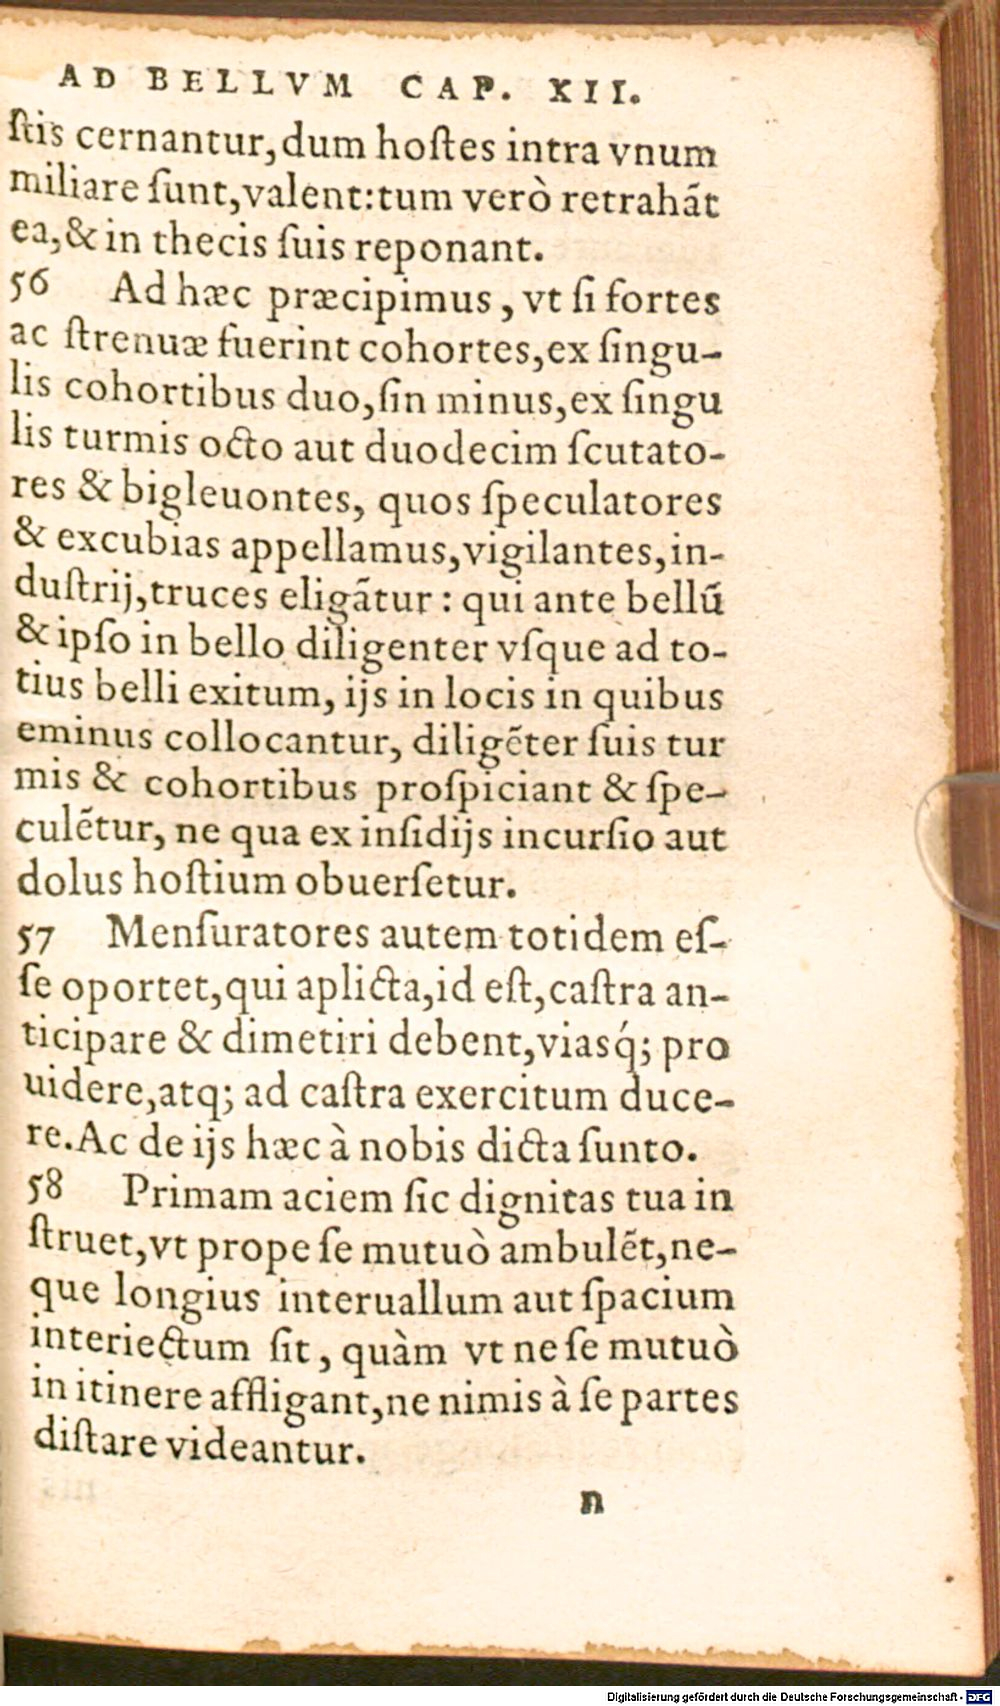 AD BELLVM CAP. XII.
ſtis cernantur, dum hoſtes intra vnum
miliare ſunt, valent: tum verò retrahãt
ea, & in thecis ſuis reponant.
56 Ad hæc præcipimus, vt ſi fortes
ac ſtrenuæ fuerint cohortes, ex ſingu-
lis cohortibus duo, ſin minus, ex ſingu
lis turmis octo aut duodecim ſcutato-
res & bigleuontes, quos ſpeculatores
& excubias appellamus, vigilantes, in-
duſtrij, truces eligãtur: qui ante bellũ
& ipſo in bello diligenter vſque ad to-
tius belli exitum, ijs in locis in quibus
eminus collocantur, diligẽter ſuis tur
mis & cohortibus proſpiciant & ſpe-
culẽtur, ne qua ex inſidijs incurſio aut
dolus hoſtium obuerſetur.
57 Menſuratores autem totidem eſ-
ſe oportet, qui aplicta, id eſt, caſtra an-
ticipare & dimetiri debent, viasq́; pro
uidere, atq; ad caſtra exercitum duce-
re. Ac de ijs hæc à nobis dicta ſunto.
58 Primam aciem ſic dignitas tua in
ſtruet, vt prope ſe mutuò ambulẽt, ne-
que longius interuallum aut ſpacium
interiectum ſit, quàm vt ne ſe mutuò
in itinere affligant, ne nimis à ſe partes
diſtare videantur.
n
Digitalisierung gefördert durch die Deutsche Forschungsgemeinschaft - DFG